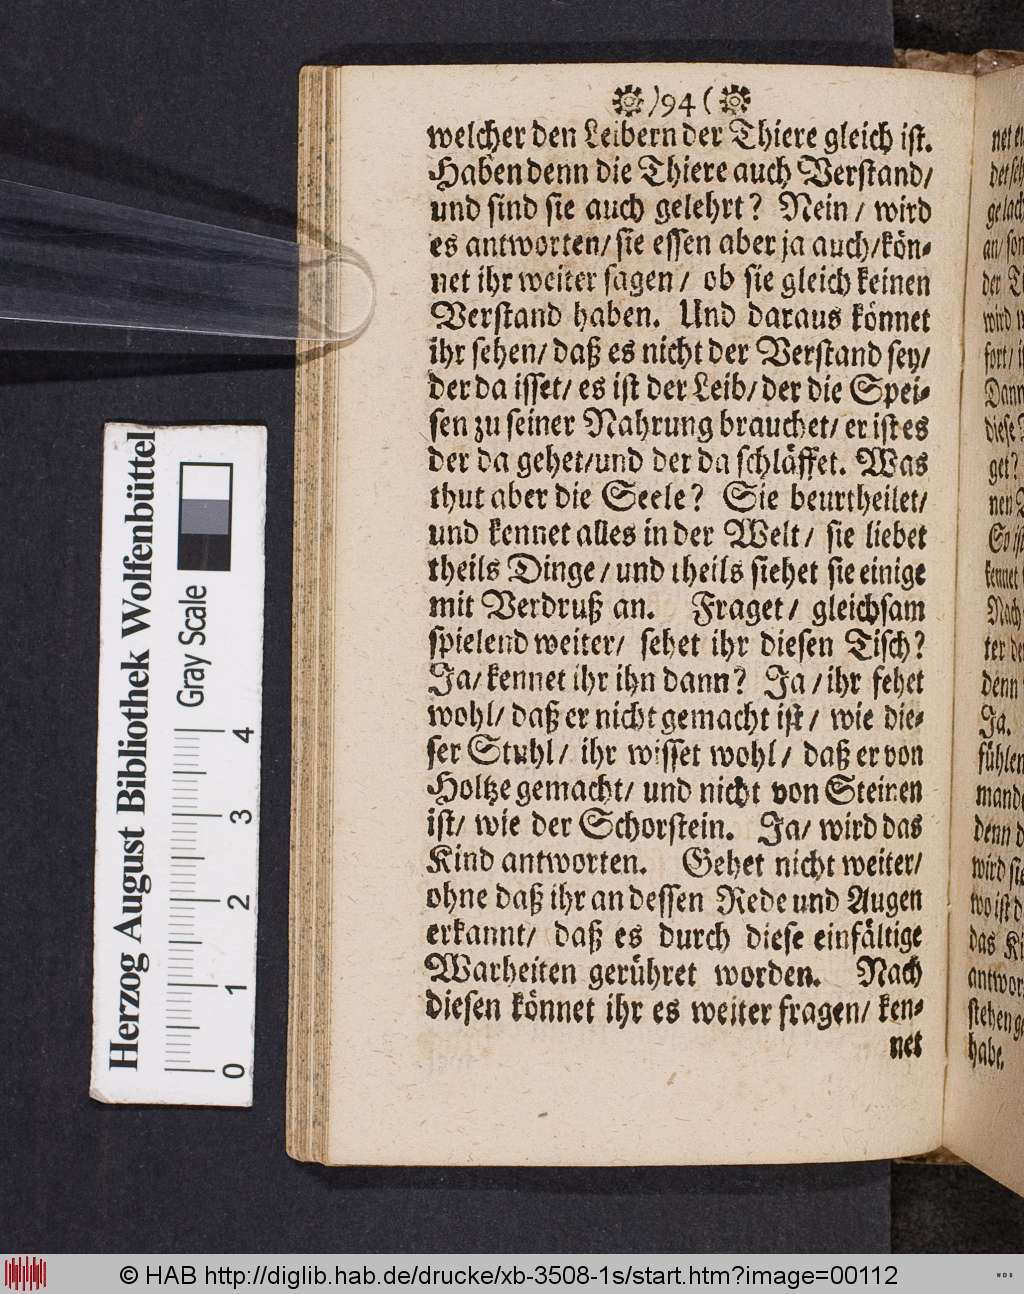 )94(
welcher den Leibern der Thiere gleich ist.
Haben denn die Thiere auch Verstand/
und sind sie auch gelehrt? Nein / wird
es antworten/ sie essen aber ja auch/kön-
net ihr weiter sagen / ob sie gleich keinen
Verstand haben. Und daraus könnet
ihr sehen/ daß es nicht der Verstand sey/
der da isset/ es ist der Leib/ der die Spei-
sen zu seiner Nahrung brauchet/ er ist es
der da gehet/und der da schläffet. Was
thut aber die Seele? Sie beurtheilet/
und kennet alles in der Welt/ sie liebet
theils Dinge / und theils siehet sie einige
mit Verdruß an. Fraget/ gleichsam
spielend weiter/ sehet ihr diesen Tisch?
Ja/ kennet ihr ihn dann? Ja / ihr sehet
wohl/ daß er nicht gemacht ist / wie die-
ser Stuhl/ ihr wisset wohl/ daß er von
Holtze gemacht/ und nicht von Steinen
ist/ wie der Schorstein. Ja/ wird das
Kind antworten. Gehet nicht weiter/
ohne daß ihr an dessen Rede und Augen
erkannt/ daß es durch diese einfältige
Warheiten gerühret worden. Nach
diesen könnet ihr es weiter fragen/ ken-
net
an/
der
wird
Dann
diese
get?
So
kennet
Nach
denn
Ja.
fühlen
denn
das
habe.
Herzog August Bibliothek Wolfenbüttel
Gray Scale
0 1 2 3 4
© HAB http://diglib.hab.de/drucke/xb-3508-1s/start.htm?image=00112